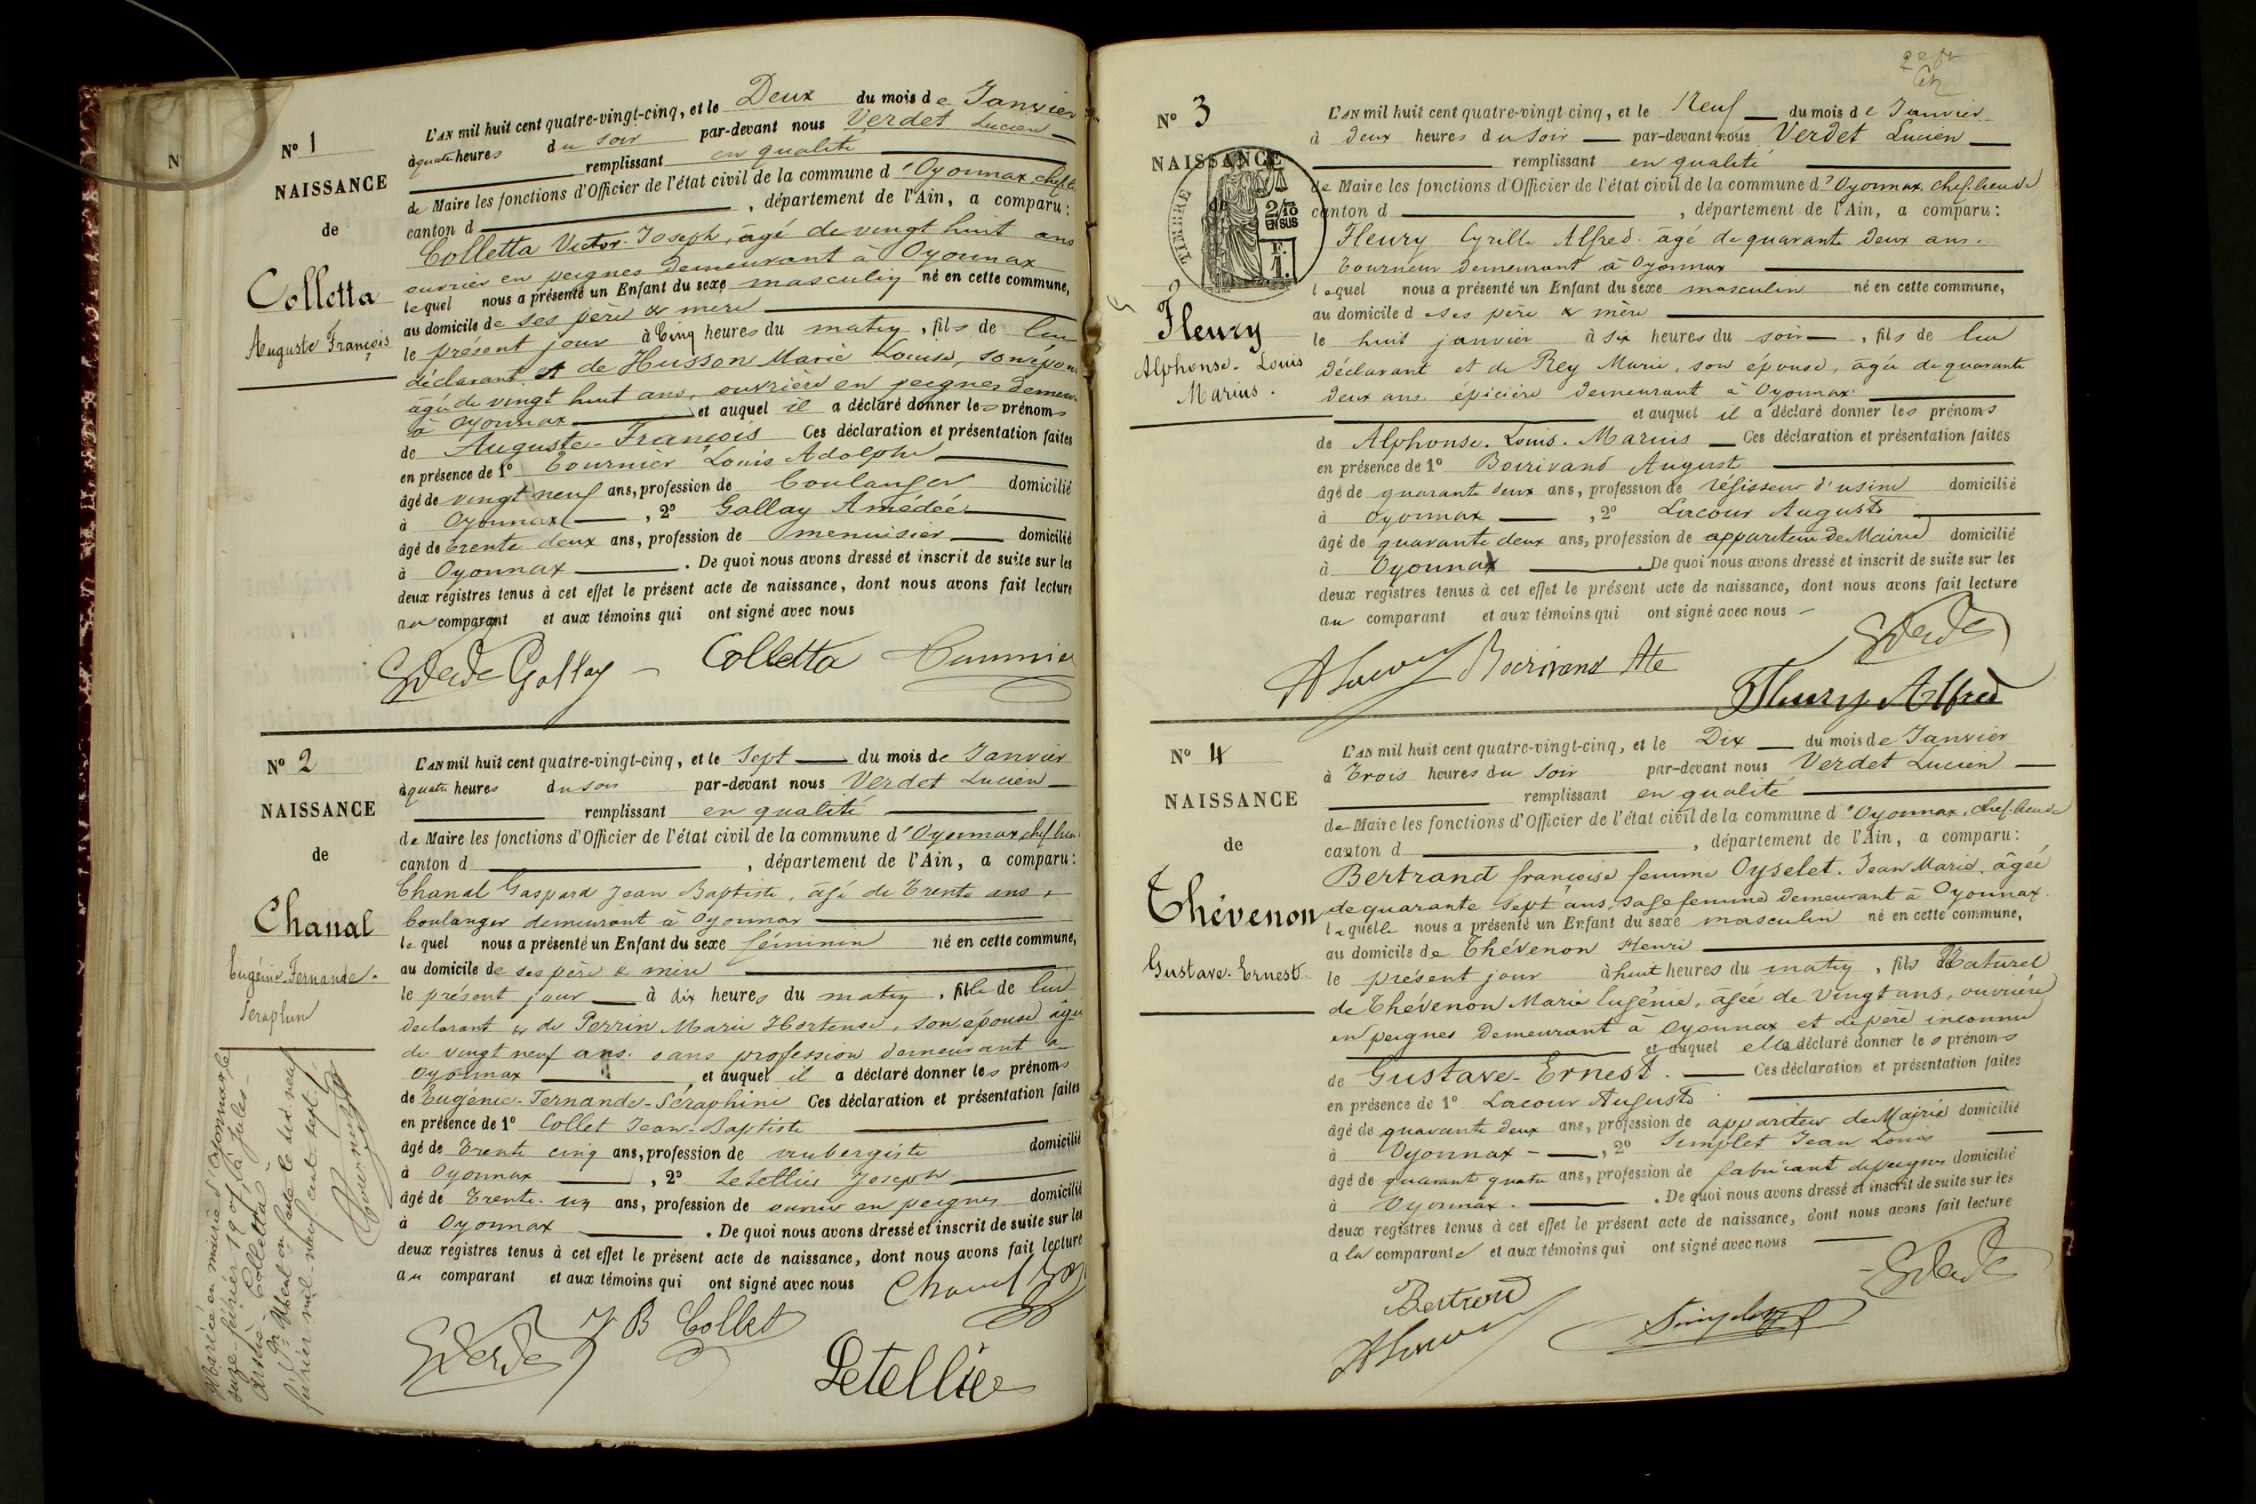 N
Nº 1
NAISSANCE
de
Colletta
Auguste François
L'AN mil huit cent quatre-vingt-cinq, et le Deux du mois de Janvier
à quatre heures du soir par-devant nous Verdet Lucien
remplissant en qualité
de Maire les fonctions d'Officier de l'état civil de la commune d'Oyonnax, chef-lieu
canton d , département de l'Ain, a comparu:
Colletta Victor-Joseph, âgé de vingt huit ans
ouvrier en peignes demeurant à Oyonnax
lequel nous a présenté un Enfant du sexe masculin né en cette commune,
au domicile de ses père & mère
le présent jour à Cinq heures du matin, fils de lui
déclarant et de Husson Marie Louise, son épouse
âgée de vingt huit ans, ouvrière en peignes demeu.
à Oyonnax et auquel il a déclaré donner les prénoms
de Auguste-François Ces déclaration et présentation faites
en présence de 1º Tournier Louis Adolphe
âgé de vingt neuf ans, profession de boulanger domicilié
à Oyonnax , 2º Gallay Amédée
âgé de trente deux ans, profession de menuisier domicilié
à Oyonnax . De quoi nous avons dressé et inscrit de suite sur les
deux registres tenus à cet effet le présent acte de naissance, dont nous avons fait lecture
au comparant et aux témoins qui ont signé avec nous
Gallay Colletta Tournier
Nº 2
NAISSANCE
de
Chanal
Eugénie-Fernande-
Séraphine
L'AN mil huit cent quatre-vingt-cinq, et le Sept du mois de Janvier
à quatre heures du soir par-devant nous Verdet Lucien
remplissant en qualité
de Maire les fonctions d'Officier de l'état civil de la commune d'Oyonnax, chef-lieu
canton d , département de l'Ain, a comparu:
Chanal Gaspard Jean Baptiste, âgé de Trente ans
boulanger demeurant à Oyonnax
lequel nous a présenté un Enfant du sexe féminin né en cette commune,
au domicile de ses père & mère
le présent jour à dix heures du matin, fille de lui
déclarant & de Perrin Marie Hortense, son épouse âgée
de vingt neuf ans. sans profession demeurant à
Oyonnax et auquel il a déclaré donner les prénoms
de Eugénie-Fernande-Séraphine Ces déclaration et présentation faites
en présence de 1º Collet Jean-Baptiste
âgé de Trente cinq ans, profession de aubergiste domicilié
à Oyonnax , 2º Letellier Joseph
âgé de Trente-un ans, profession de ouvrier en peignes domicilié
à Oyonnax . De quoi nous avons dressé et inscrit de suite sur les
deux registres tenus à cet effet le présent acte de naissance, dont nous avons fait lecture
au comparant et aux témoins qui ont signé avec nous Chanal
J B Collet
Letellier
Mariée en mairie d'Oyonnax le
seize février 1907, à Jules-
Colletta
le dix neuf
février mil-neuf-cent-sept.
Nº 3
NAISSANCE
de
TIMBRE
2/10
EN SUS
F.
1.
Fleury
Alphonse-Louis
Marius.
L'AN mil huit cent quatre-vingt-cinq, et le Neuf du mois de Janvier
à deux heures du soir par-devant nous Verdet Lucien
remplissant en qualité
de Maire les fonctions d'Officier de l'état civil de la commune d'Oyonnax, chef-lieu de
canton d , département de l'Ain, a comparu:
Fleury Cyrille Alfred âgé de quarante deux ans.
tourneur demeurant à Oyonnax
lequel nous a présenté un Enfant du sexe masculin né en cette commune,
au domicile de ses père & mère
le huit janvier à six heures du soir, fils de lui
déclarant et de Rey Marie, son épouse, âgée de quarante
deux ans épicière demeurant à Oyonnax
et auquel il a déclaré donner les prénoms
de Alphonse-Louis-Marius Ces déclaration et présentation faites
en présence de 1º Bourivand August
âgé de quarante deux ans, profession de régisseur d'usine domicilié
à Oyonnax , 2º Lacour Auguste
âgé de quarante deux ans, profession de appariteur de Mairie domicilié
à Oyonnax . De quoi nous avons dressé et inscrit de suite sur les
deux registres tenus à cet effet le présent acte de naissance, dont nous avons fait lecture
au comparant et aux témoins qui ont signé avec nous
Fleury Alfred
Nº 4
NAISSANCE
de
Thévenon
Gustave-Ernest.
L'AN mil huit cent quatre-vingt-cinq, et le Dix du mois de Janvier
à Trois heures du soir par-devant nous Verdet Lucien
remplissant en qualité
de Maire les fonctions d'Officier de l'état civil de la commune d'Oyonnax, chef-lieu de
canton d , département de l'Ain, a comparu:
Bertrand françoise femme Oyselet. Jean Marie. âgée
de quarante sept ans, sage femme demeurant à Oyonnax.
laquelle nous a présenté un Enfant du sexe masculin né en cette commune,
au domicile de Thévenon Henri
le présent jour à huit heures du matin, fils Naturel
de Thévenon Marie Eugénie, âgée de vingt ans, ouvrière
en peignes demeurant à Oyonnax et de père inconnu
et auquel elle a déclaré donner les prénoms
de Gustave-Ernest. Ces déclaration et présentation faites
en présence de 1º Lacour Auguste
âgé de quarante deux ans, profession de appariteur de Mairie domicilié
à Oyonnax , 2º Simplet Jean Louis
âgé de quarante quatre ans, profession de fabricant de peignes domicilié
à Oyonnax . De quoi nous avons dressé et inscrit de suite sur les
deux registres tenus à cet effet le présent acte de naissance, dont nous avons fait lecture
à la comparante et aux témoins qui ont signé avec nous
Bertrand